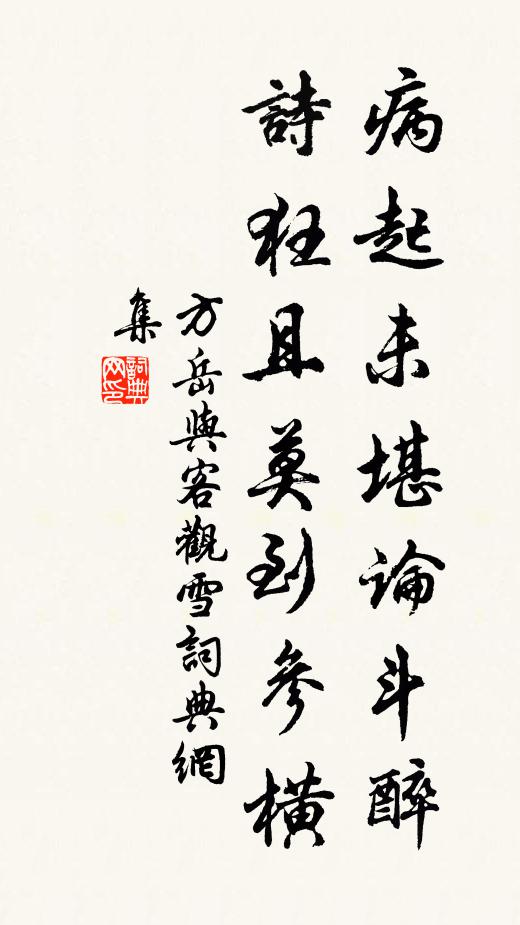 病起未堪論斗醉
詩狂且莫到參橫
方岳與客觀雪詞典網
集
詞典
网印